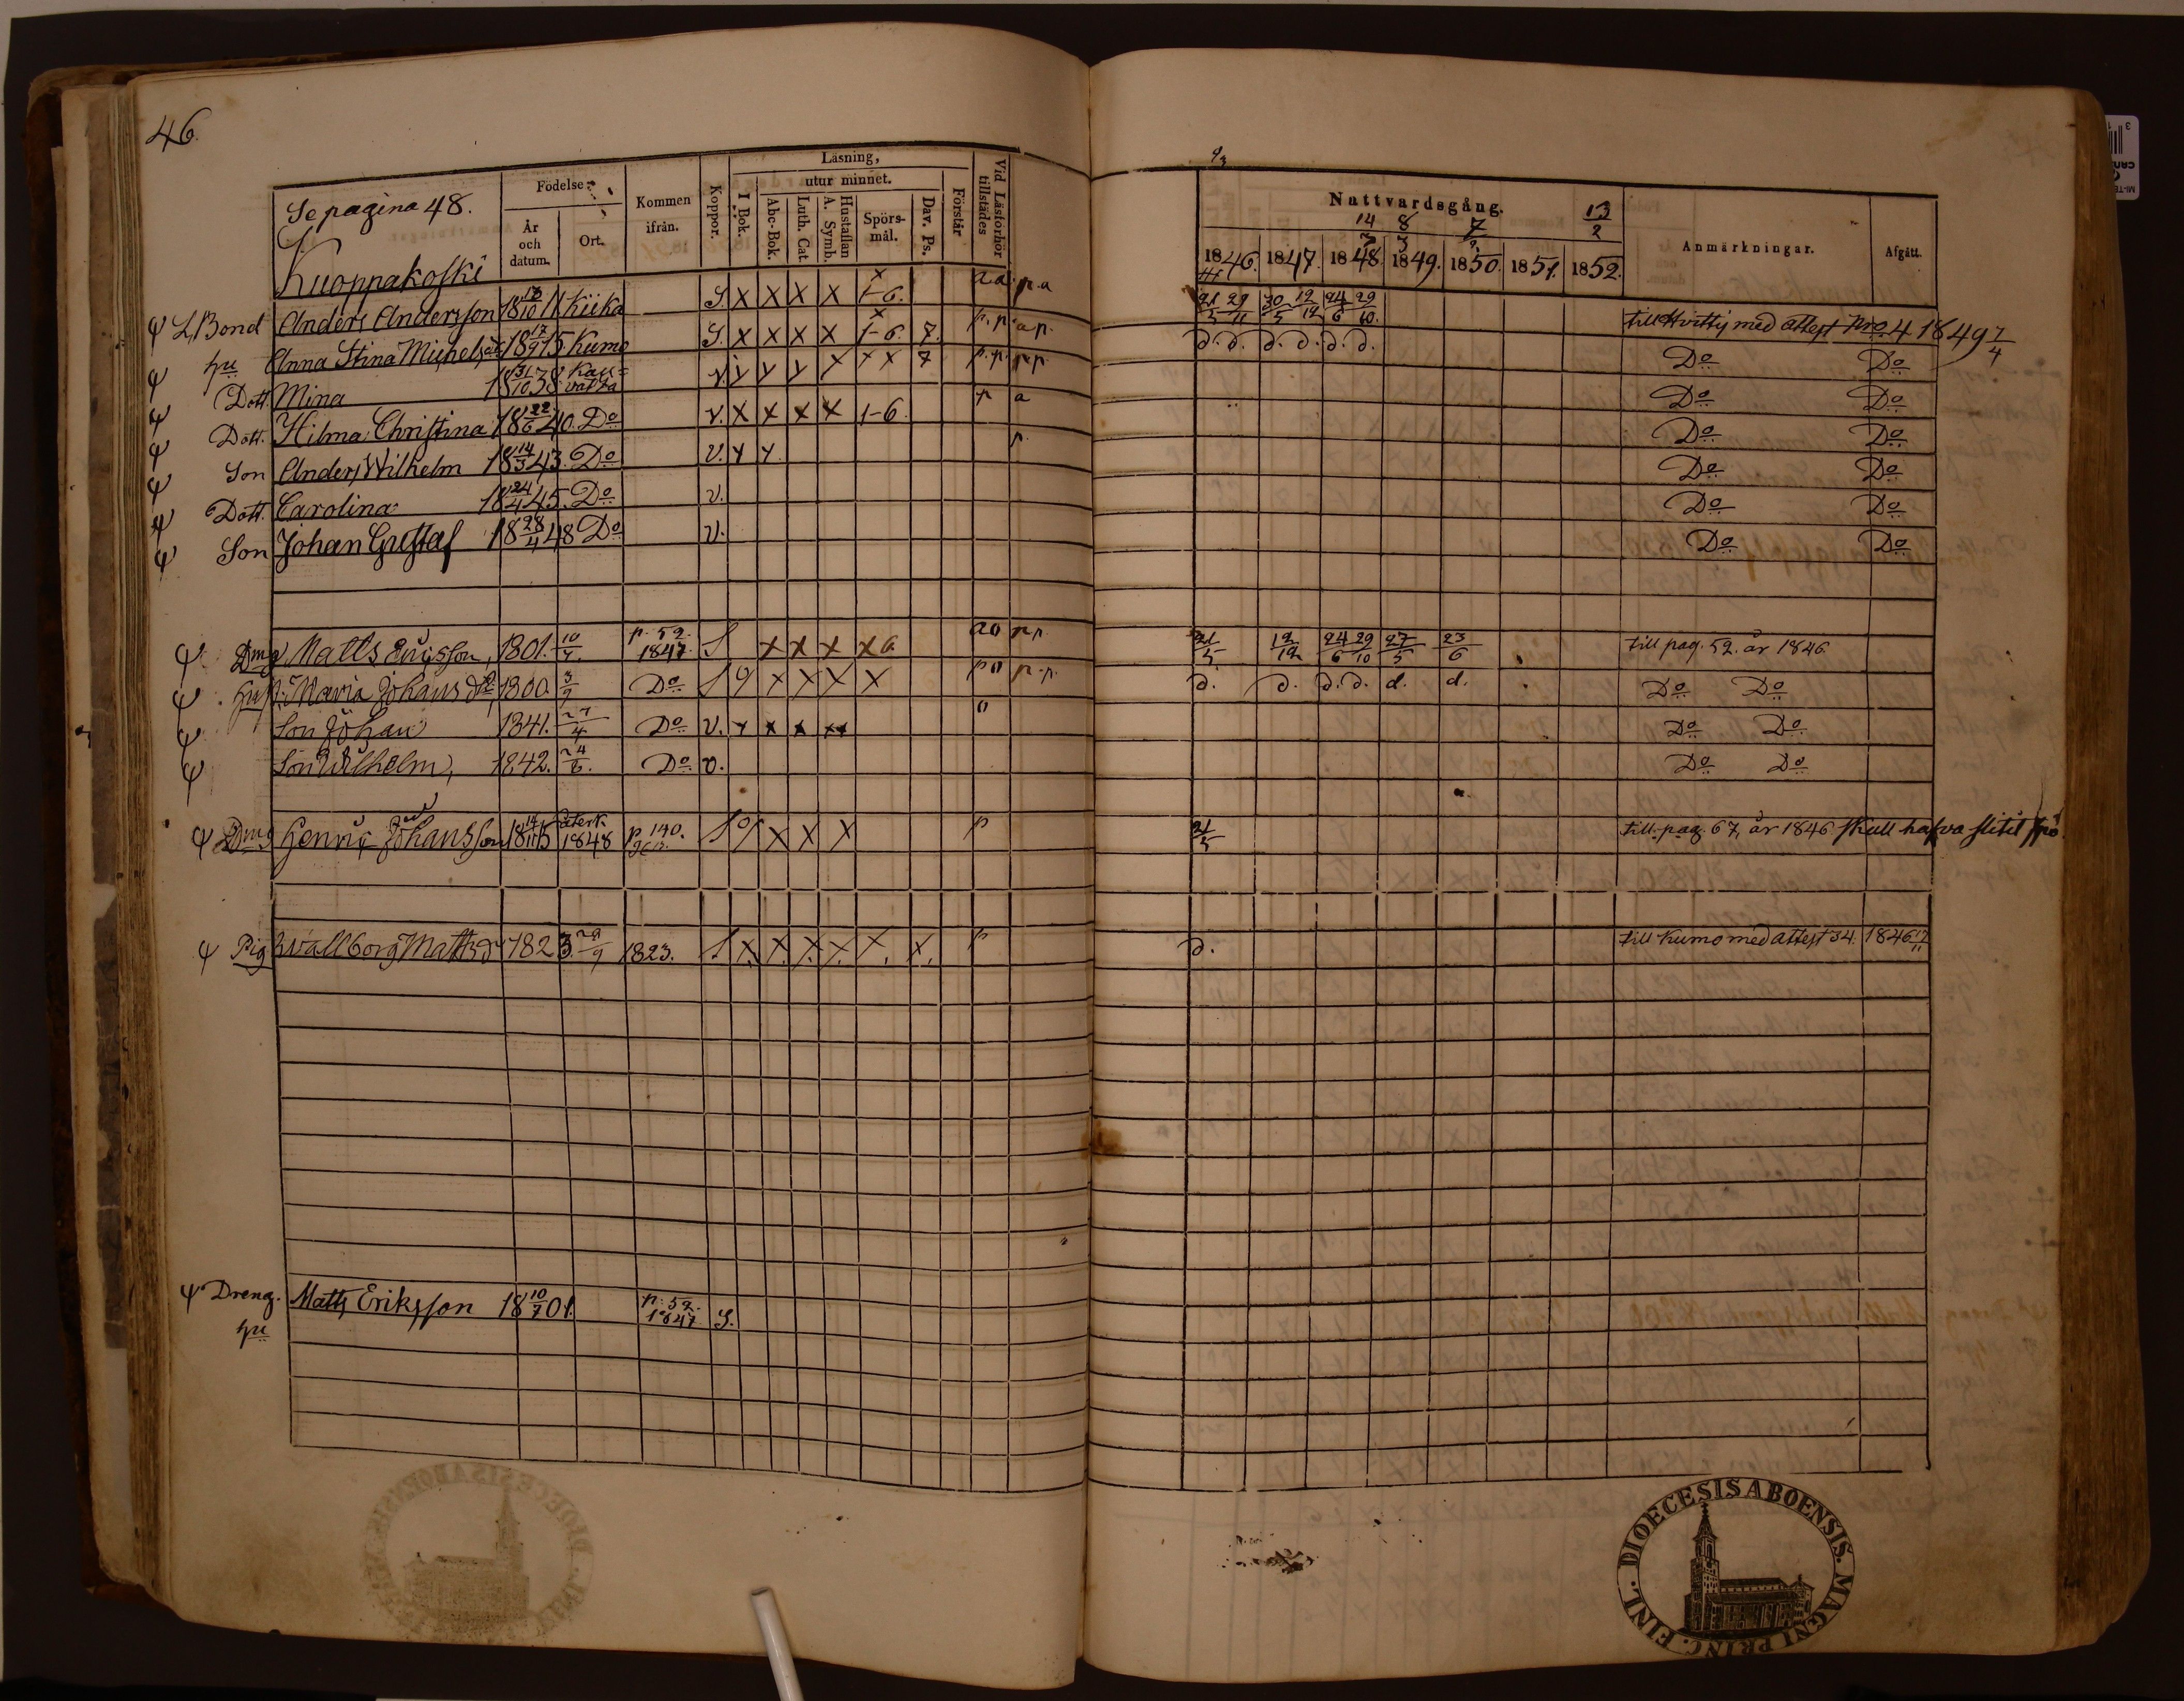 46.
Se pagina 48.
Kuoppakoski
Födelse
År och datum.
Ort.
Kommen ifrån.
Koppor.
Läsning,
utur minnet.
I Bok.
Abc-Bok.
Luth. Cat.
Hustaflan A. Symb.
Spörsmål.
Dav. Ps.
Förstår
Vid Läsförhör tillstädes
Nattvardsgång.
14/3 8/3 7/2 13/2
1846. 1847. 1848. 1849. 1850. 1851. 1852.
Anmärkningar.
Afgått.
ψ L,Bond Anders Andersson 18 13/10 11 Kiika S. X X X X 1-6. a.a. p.a 21/5 29/11 30/5 12/12 24/6 29/10. till Hvittis med attest Nro 4 1849 7/4
ψ hu Anna Stina Michelsdr 18 17/9 15 Kumo S. X X X X 1-6. 7. p.p. a p. d. d. d. d. d. d. Do Do
ψ Dott. Mina 18 31/10 38 Kauvatsa v. 7 p.p. p.p. Do Do
ψ Dott. Hilma Christina 18 22/6 40. Do v. X X X X 1-6. a Do Do
ψ Son Anders Wilhelm 18 14/3 43. Do v. p. Do Do
ψ Dott. Carolina 18 24/4 45. Do v. Do Do
ψ Son Johan Gustaf 18 28/4 48 Do v. Do Do
ψ Dreng Matts Ericsson, 1801. 10/7. p. 52. 1847. S X X X X 6. p.p. 21/5 12/12 24/6 29/10 27/5 23/6 till pag. 52. år 1846.
ψ Hust. Maria Johans dr 1800. 3/9 Do S X X X X p.p. d. d. d. d. d. d. Do Do
ψ Son Johan 1841. 27/4 Do v. Do Do
ψ Son Wilhelm, 1842. 24/6. Do v. Do Do
ψ Henric Johansson 18 14/11 15 återk. 1848 p. 140. S X X X p 21/5 till pag. 67, år 1846. skall hafva slitit spö.
ψ Pig Wallborg Mattsdr 1823. 29/9 1823. S X. X. X. X. X. X. p d. till Kumo med attest 34. 1846 17/11
ψ Dreng. Matts Eriksson 18 10/7 01. p. 52. 1847. S.
hu
DIOECESIS ABOENSIS. MAGNI PRINC. FINL.